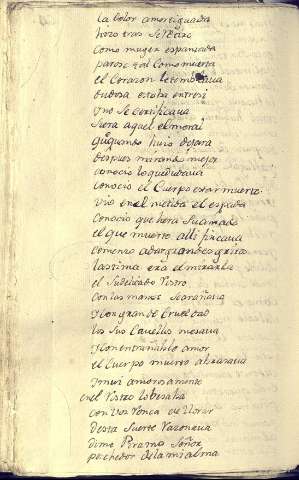 la color amortiguada
hizo tras se
como muger espantada
como muerta
el Corazon le temblaua
dudosa estaba entresi
y no se certificaua
siera aquel el moral
quando huio de fora
despues mirando mejor
conocio lo que dudaua
conocio el Cuerpo estar muerto
vio en el metida el espada
conocio que hera su amado
el que muerto alli
comenzo a dar grandes gritos
lastima era el miralla
el su delicado rostro
con las manos se arañaua
y con grande Crueldad
los sus Cauellos mesaua
y con entrañable amor
el Cuerpo muerto abrazaua
y muy amorosamente
en el rostro lo besaba
con voz ronca de llorar
desta suerte razonaua
dime Piramo Señor
de la mi alma